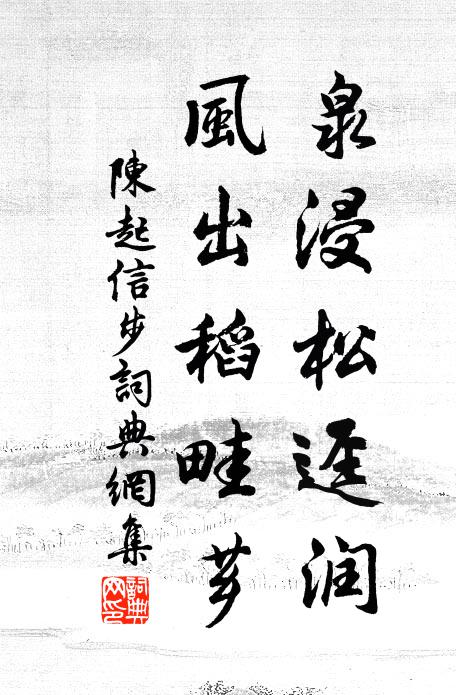 泉浸松逕润
風出稻畦芗
陳起信步詞典網集
詞典网印